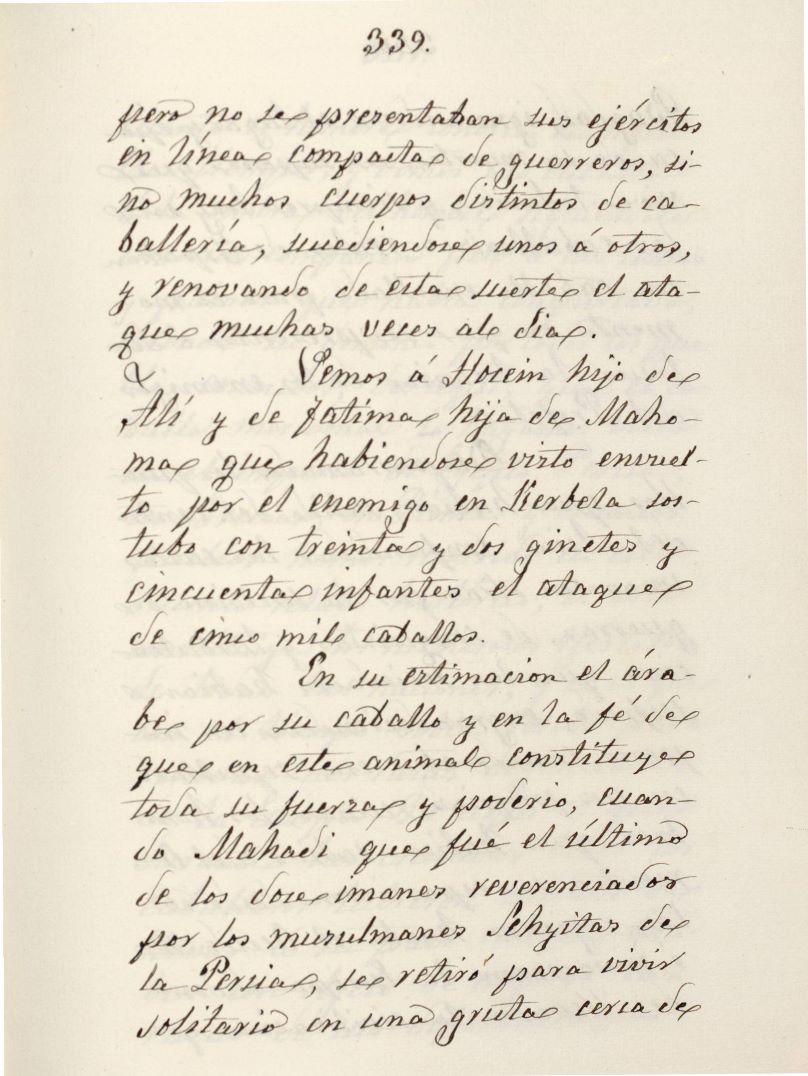 339.
pero no se presentaban sus ejércitos
en línea compacta de guerreros, si-
no muchos cuerpos distintos de ca-
ballería, sucediendose unos á otros,
y renovando de esta suerte el ata-
que muchas veces al dia.
Vemos á Hocein hijo de
Alí y de Fatima hija de Maho-
ma que habiendose visto envuel-
to por el enemigo en Kerbela sos-
tubo con treinta y dos ginetes y
cincuenta infantes el ataque
de cinco mil caballos.
En su estimacion el ára-
be por su caballo y en la fé de
que en este animal constituye
toda su fuerza y poderio, cuan-
do Mahadi que fué el último
de los doce imanes reverenciados
por los musulmanes Schyitas de
la Persia, se retiró para vivir
solitario en una gruta cerca de